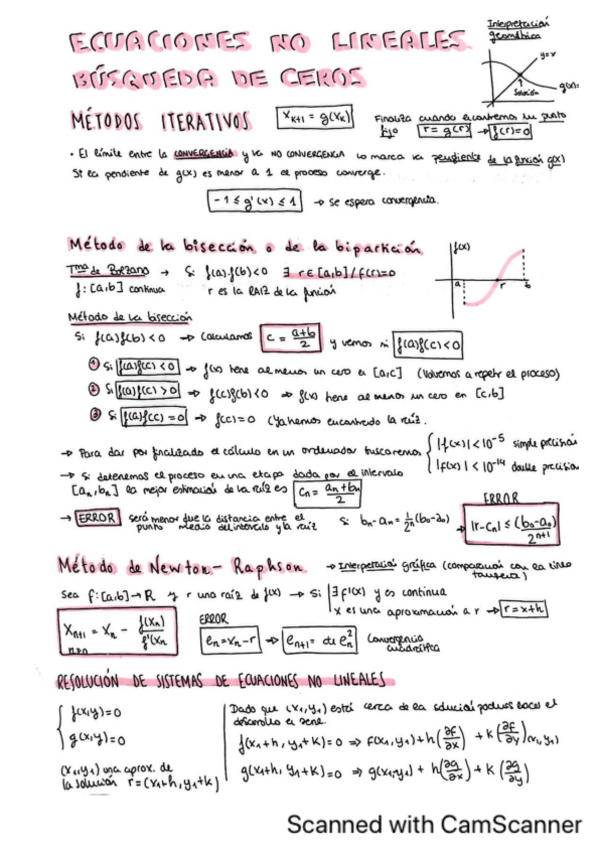 ECUACIONES NO LINEALES
BÚSQUEDA DE CEROS
Interpretación
geométrica
y=x
g(x)
Solución
MÉTODOS ITERATIVOS
x_{k+1} = g(x_k)
Finaliza cuando encontremos un punto
fijo r = g(r) → f(r)=0
• El límite entre la CONVERGENCIA y la NO CONVERGENCIA lo marca la pendiente de la función g(x)
Si la pendiente de g(x) es menor a 1 el proceso converge.
-1 ≤ g'(x) ≤ 1 → se espera convergencia.
Método de la bisección o de la bipartición
Tma de Bolzano → Si f(a)·f(b)<0 ∃ r∈[a,b] / f(r)=0
f: [a,b] continua r es la RAIZ de la función
f(x)
a r b
Método de la bisección
Si f(a)f(b)<0 → Calculamos c = (a+b)/2 y vemos si f(a)f(c)<0
① Si f(a)f(c)<0 → f(x) tiene al menos un cero en [a,c] (Volvemos a repetir el proceso)
② Si f(a)f(c)>0 → f(c)f(b)<0 → f(x) tiene al menos un cero en [c,b]
③ Si f(a)f(c)=0 → f(c)=0 (Ya hemos encontrado la raíz.
→ Para dar por finalizado el cálculo en un ordenador buscaremos
|f(x)|<10^{-5} simple precisión
|f(x)|<10^{-14} double precision
→ Si detenemos el proceso en una etapa dada por el intervalo
[a_n, b_n] la mejor estimación de la raíz es c_n = (a_n+b_n)/2
→ ERROR será menor que la distancia entre el
punto medio del intervalo y la raíz
Si b_n-a_n = 1/2^n (b_0-a_0) →
ERROR
|r-c_n| ≤ (b_0-a_0)/2^{n+1}
Método de Newton-Raphson
→ Interpretación gráfica (comparación con la línea
tangente)
Sea f: [a,b]→R y r una raíz de f(x) → Si
∃ f'(x) y es continua
x es una aproximación a r → r=x+h
x_{n+1} = x_n - f(x_n)/f'(x_n
n≥0
ERROR
e_n = x_n - r → e_{n+1} = cte e_n^2
Convergencia
cuadrática
RESOLUCIÓN DE SISTEMAS DE ECUACIONES NO LINEALES
f(x,y)=0
g(x,y)=0
(x_1,y_1) una aprox. de
la solución r=(x_1+h, y_1+k)
Dado que (x_1,y_1) está cerca de la solución podemos hacer el
desarrollo en serie.
f(x_1+h, y_1+k)=0 ⇒ f(x_1,y_1)+h(∂f/∂x) + k(∂f/∂y)_{(x_1,y_1)}
g(x_1+h, y_1+k)=0 ⇒ g(x_1,y_1) + h(∂g/∂x) + k(∂g/∂y)
Scanned with CamScanner